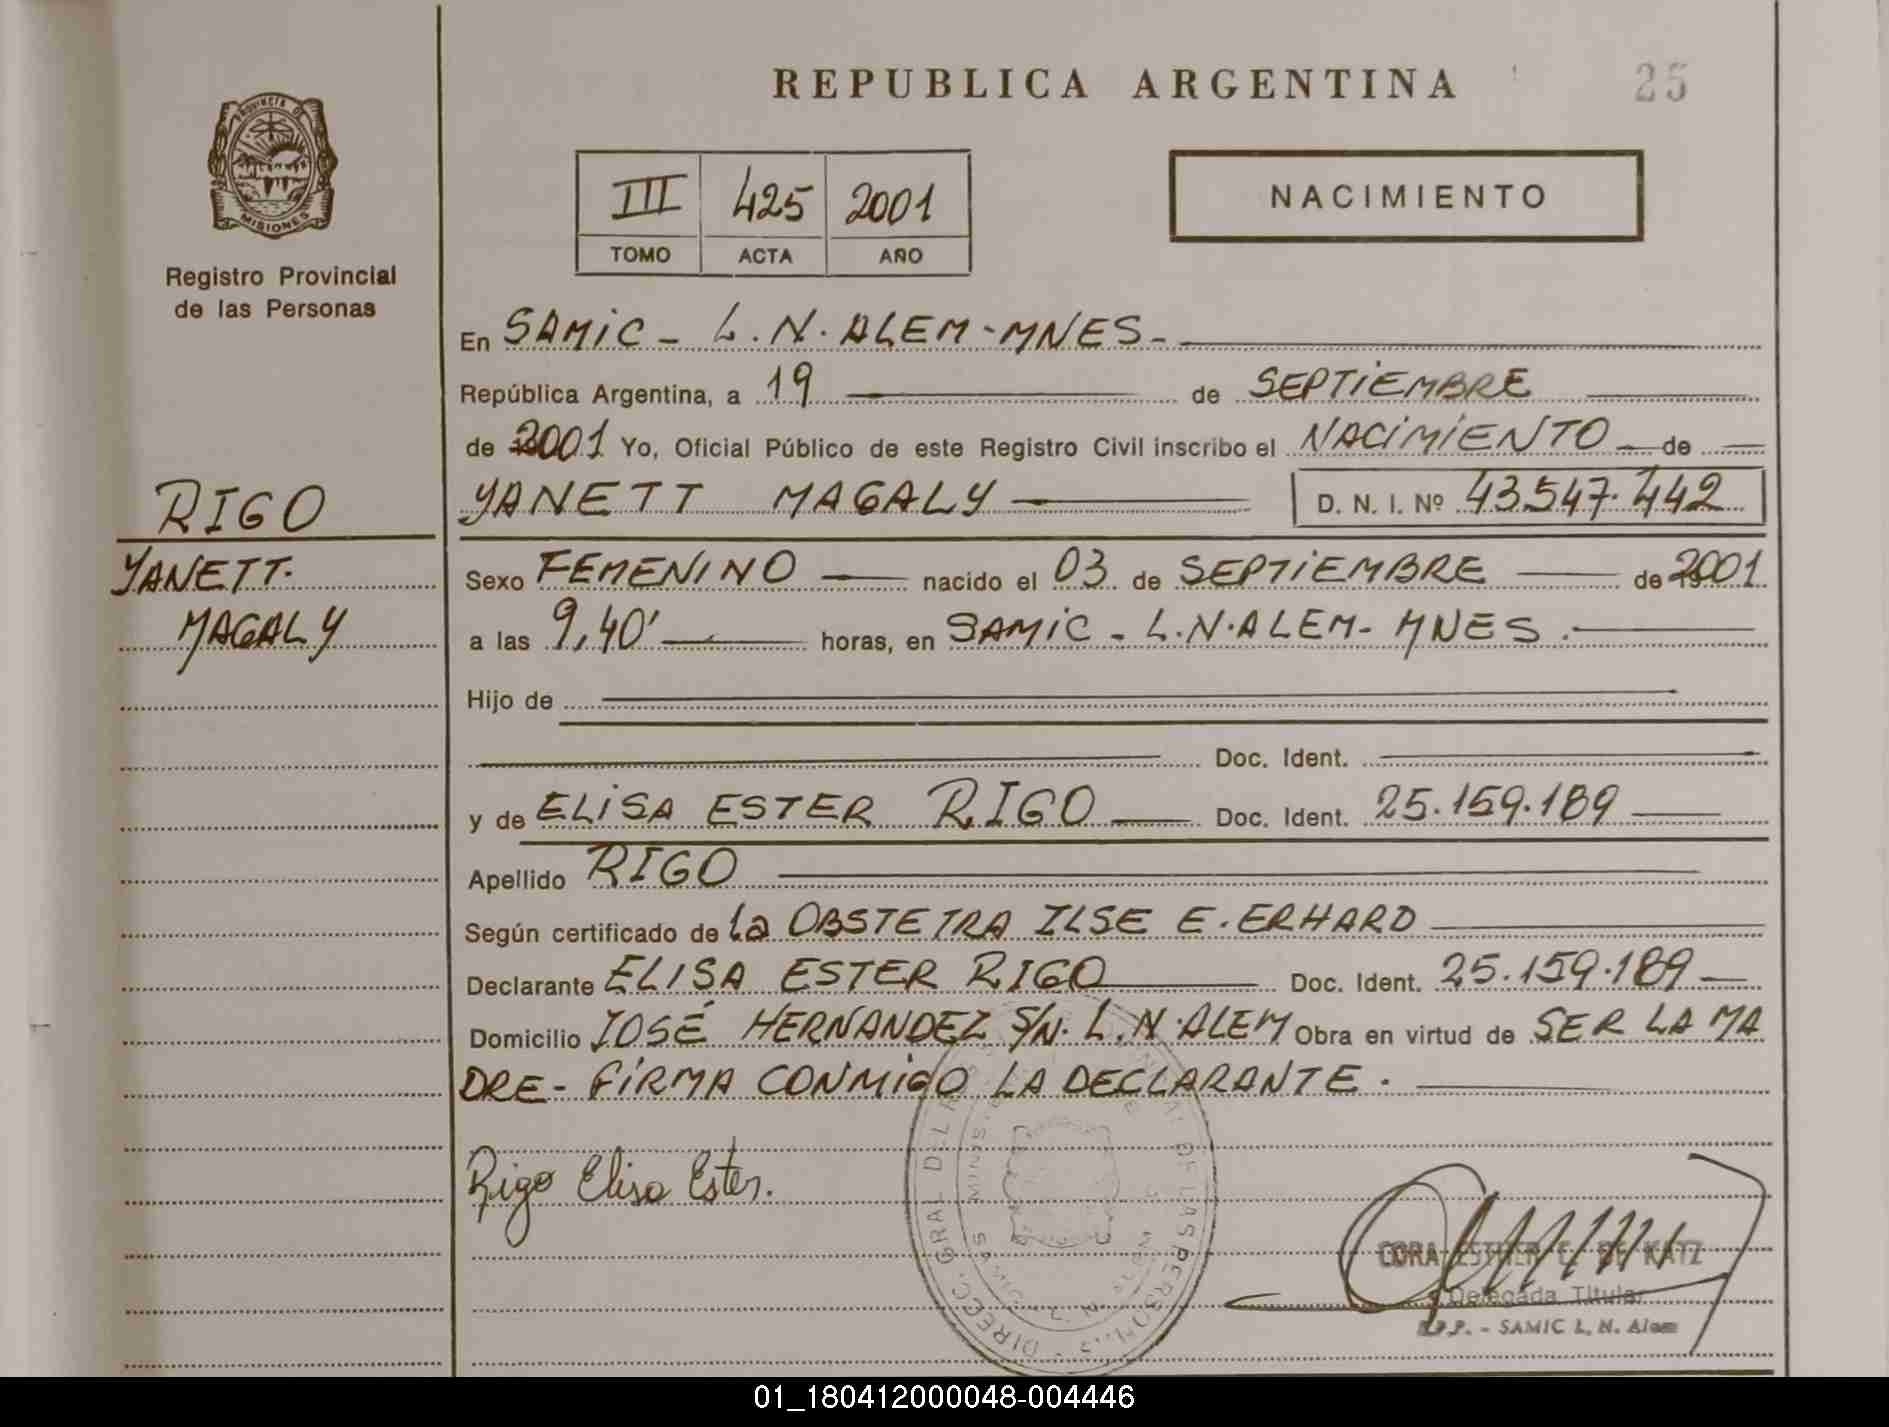 REPUBLICA ARGENTINA
25
PROVINCIA DE
MISIONES
Registro Provincial
de las Personas
III 425 2001
TOMO ACTA AÑO
NACIMIENTO
En SAMIC - L.N. ALEM - MNES -
República Argentina, a 19 de SEPTIEMBRE
de 2001 Yo, Oficial Público de este Registro Civil inscribo el NACIMIENTO de
YANETT MAGALY D. N. I. Nº 43.547.442
RIGO
YANETT.
MAGALY
Sexo FEMENINO nacido el 03 de SEPTIEMBRE de 2001.
a las 9,40' horas, en SAMIC - L.N. ALEM - MNES.
Hijo de
Doc. Ident.
y de ELISA ESTER RIGO Doc. Ident. 25.159.189
Apellido RIGO
Según certificado de la OBSTETRA ILSE E. ERHARD
Declarante ELISA ESTER RIGO Doc. Ident. 25.159.189
Domicilio JOSÉ HERNANDEZ S/N. L.N. ALEM Obra en virtud de SER LA MA
DRE - FIRMA CONMIGO LA DECLARANTE.
Rigo Elisa Ester.
CORA ESTHER DE KATZ
Delegada Titular
R.P.P. - SAMIC L. N. Alem
01_180412000048-004446